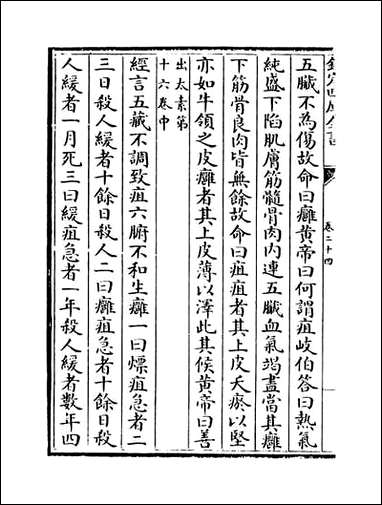 欽定四庫全書
卷二十四
五臓不為傷故命曰癰黄帝曰何謂疽岐伯答曰熱氣
純盛下陷肌膚筋髓骨肉内連五臓血氣竭盡當其癰
下筋骨良肉皆無餘故命曰疽疽者其上皮夭瘀以堅
亦如牛領之皮癰者其上皮薄以澤此其候黄帝曰善
出太素第
十六卷中
經言五藏不調致疽六腑不和生癰一曰熛疽急者二
三日殺人緩者十餘日殺人二曰癰疽急者十餘日殺
人緩者一月死三曰緩疽急者一年殺人緩者數年四